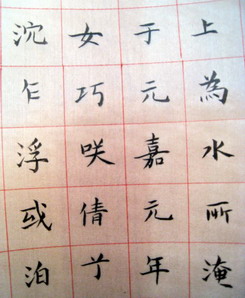 上為水所淹
于元嘉元年
女巧咲倩兮
沉乍浮或泊